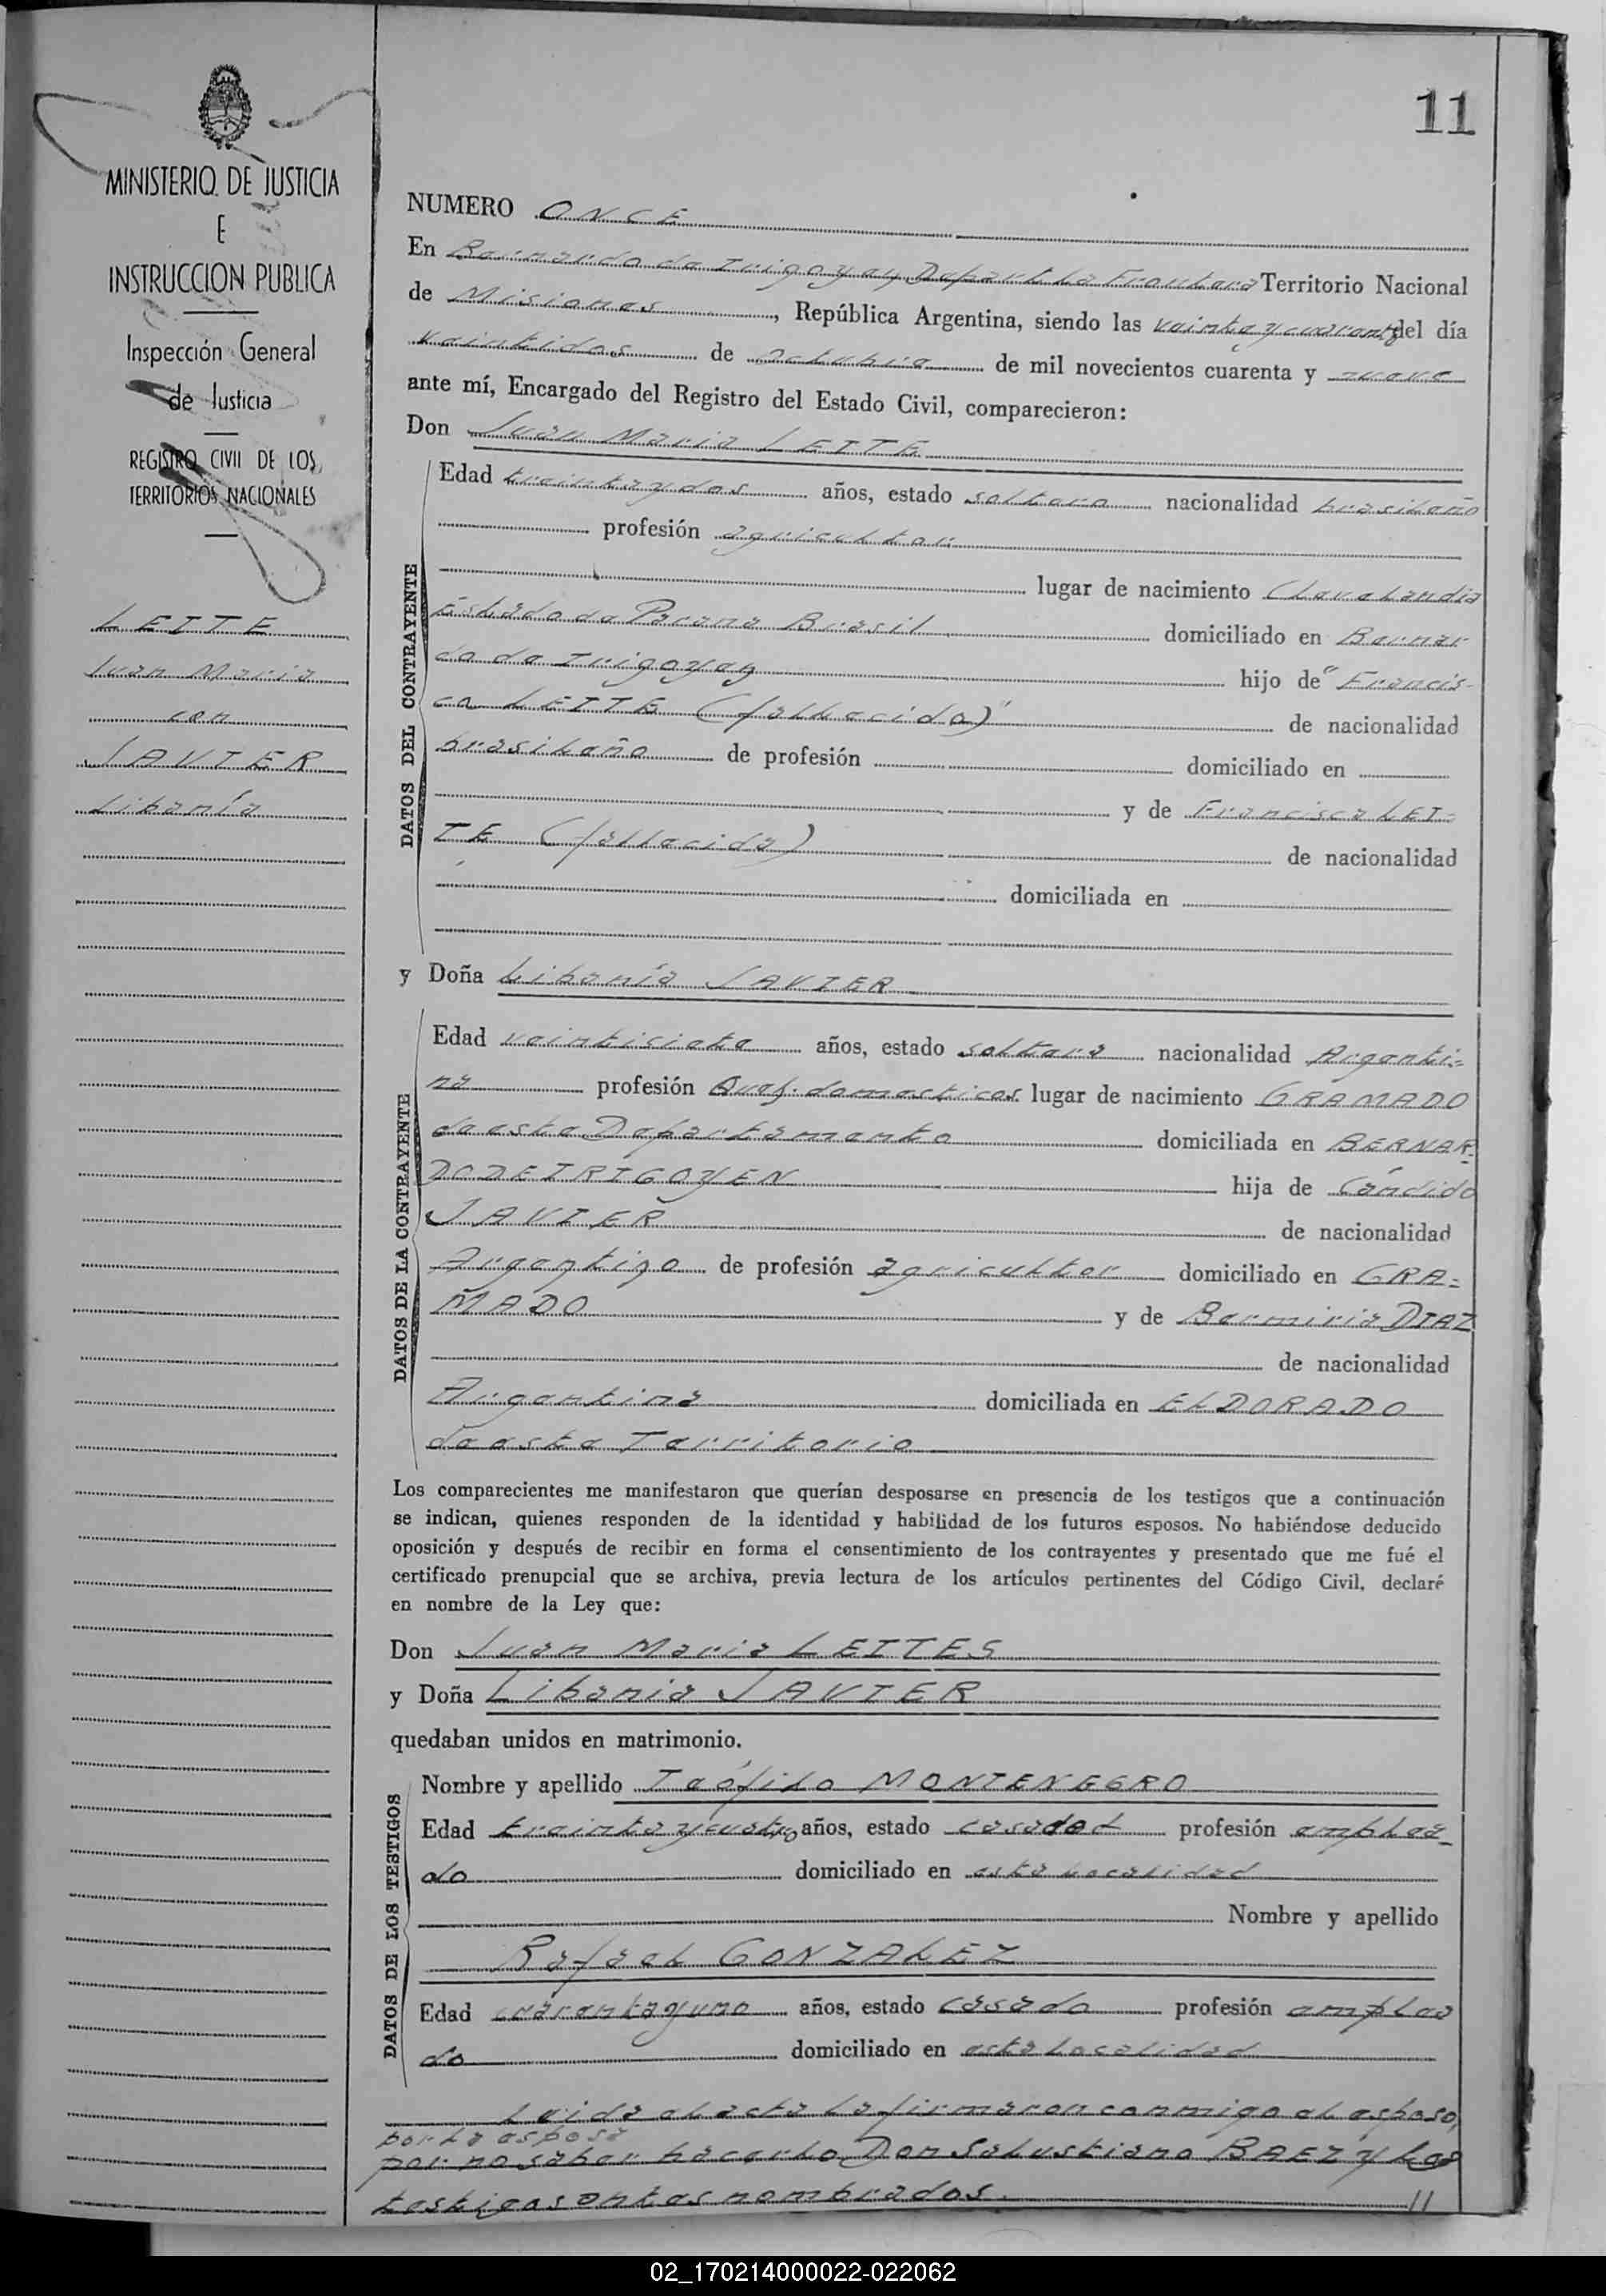 11
MINISTERIO DE JUSTICIA
E
INSTRUCCION PUBLICA
Inspección General
de Justicia
REGISTRO CIVIL DE LOS
TERRITORIOS NACIONALES
LEITE
Juan Maria
con
JAVIER
Libanía
NUMERO ONCE
En Bernardo de Irigoyen Depart. La Frontera Territorio Nacional
de Misiones, República Argentina, siendo las veinte y cuarenta del día
veintidos de octubre de mil novecientos cuarenta y nueve
ante mí, Encargado del Registro del Estado Civil, comparecieron:
Don Juan Maria LEITE
DATOS DEL CONTRAYENTE
Edad treinta y dos años, estado soltero nacionalidad brasileño
profesión agricultor
lugar de nacimiento Clevelandia
Estado de Parana Brasil domiciliado en Bernar
do de Irigoyen hijo de "Francis-
co LEITE (fallecido)" de nacionalidad
brasileño de profesión domiciliado en
y de Francisca LEI-
TE (fallecida) de nacionalidad
domiciliada en
y Doña Libanía JAVIER
DATOS DE LA CONTRAYENTE
Edad veintisiete años, estado soltera nacionalidad Argenti=
na profesión Queh. domesticos lugar de nacimiento GRAMADO
de este Departamento domiciliada en BERNAR=
DO DE IRIGOYEN hija de Cándido
JAVIER de nacionalidad
Argentino de profesión agricultor domiciliado en GRA=
MADO y de Bermiria DIAZ
de nacionalidad
Argentina domiciliada en ELDORADO
de este Territorio
Los comparecientes me manifestaron que querían desposarse en presencia de los testigos que a continuación
se indican, quienes responden de la identidad y habilidad de los futuros esposos. No habiéndose deducido
oposición y después de recibir en forma el consentimiento de los contrayentes y presentado que me fué el
certificado prenupcial que se archiva, previa lectura de los artículos pertinentes del Código Civil, declaré
en nombre de la Ley que:
Don Juan Maria LEITES
y Doña Libania JAVIER
quedaban unidos en matrimonio.
DATOS DE LOS TESTIGOS
Nombre y apellido Teófilo MONTENEGRO
Edad treinta y cuatro años, estado casado profesión emplea-
do domiciliado en esta localidad
Nombre y apellido
Rafael GONZALEZ
Edad cuarenta y uno años, estado casado profesión emplea
do domiciliado en esta localidad
Leida el acta la firmaron conmigo el esposo,
por la esposa
por no saber hacerlo Don Salustiano BAEZ y los
testigos antes nombrados. //
02_170214000022-022062